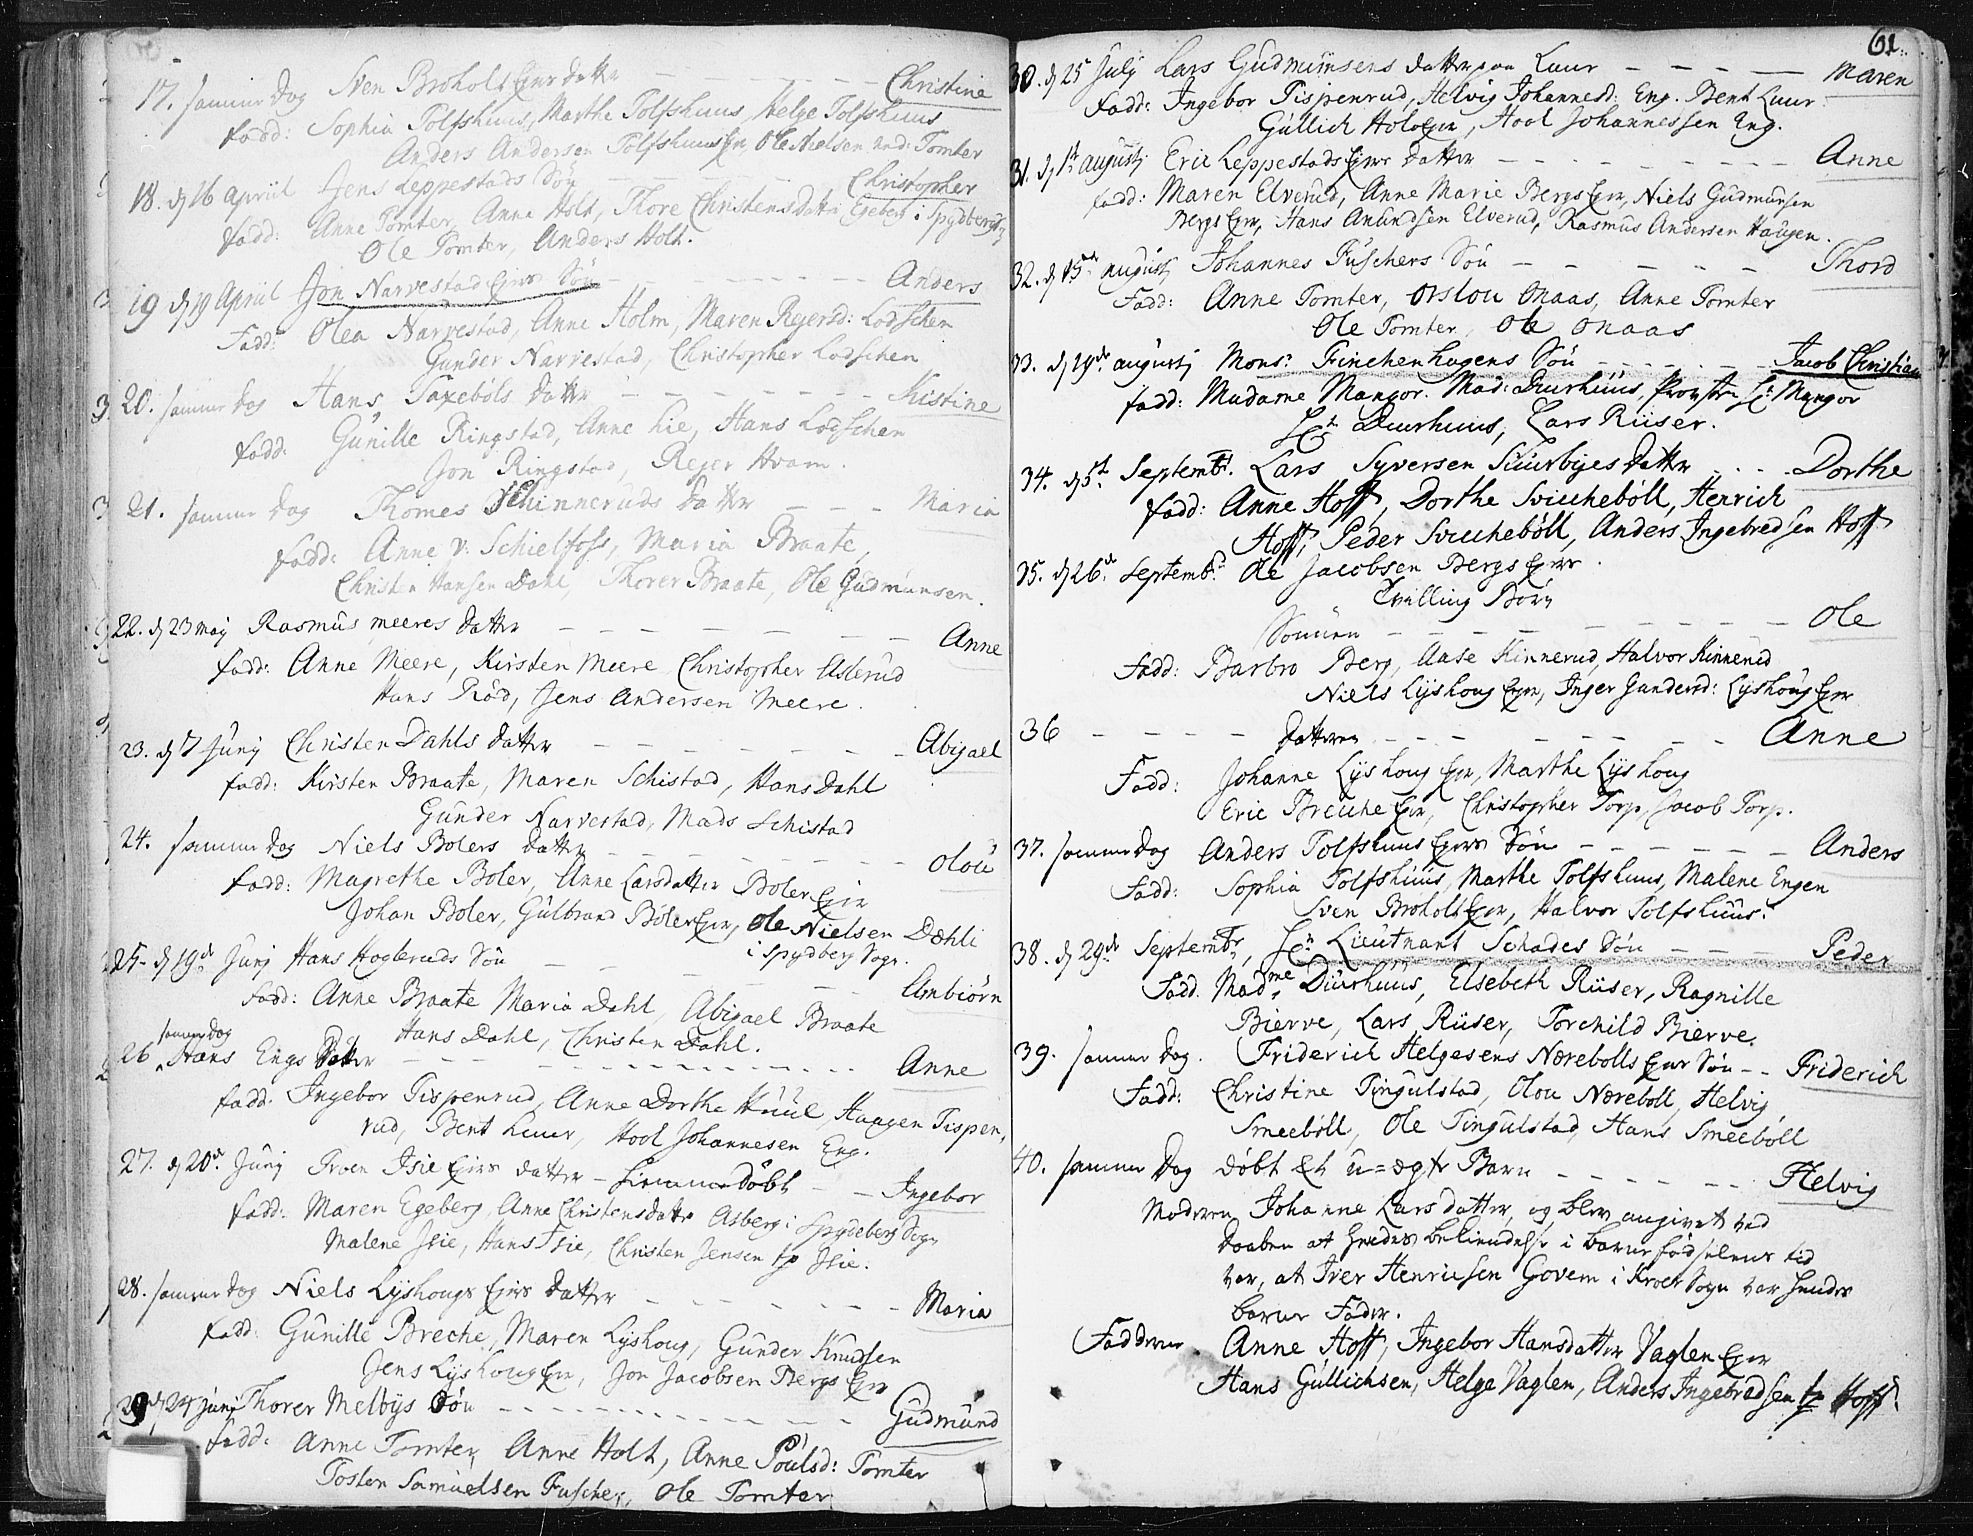 17. samme Dag Sven Broholt Ejers datter — — — — Christine
fadd: Sophia Tolfshuus, Marthe Tolfshuus, Helge Tolfshuus
Anders Andersen Tolfshuus Ejer Ole Nielsen Tomter
18. d 16 April Jens Leppestads Søn — — — — Christopher
fadd: Anne Tomter, Anne Holt, Thore Christensdatter Egeberg i Spydberg
Ole Tomter, Anders Holt.
19 d 19 April Jon Narvestad Ejers Søn — — — — Anders
Fadd: Olea Narvestad, Anne Holm, Maren Rejersd: Lodschen
Gunder Narvestad, Christopher Lodschen
20. samme Dag Hans Saxebøls datter — — — — Kistine
fadd: Gunille Ringstad, Anne Lie, Hans Lodschen
Jon Ringstad, Rejer Hvam.
21. samme Dag Thomes Schinneruds datter — — — Maria
fadd: Anne v: Schielfoss, Maria Braate,
Christen Hansen Dahl, Thorer Braate, Ole Gudmunsen.
22. d 23 maj Rasmus meeres datter — — — — Anne
fadd: Anne Meere, Kirsten Meere Christopher Aslerud
Hans Rød, Jens Andersen Meere.
23. d 7 Junj Christen Dahls datter — — — — Abigael
fadd: Kirsten Braate, Maren Schistad, Hans Dahl
Gunder Narvestad, Mads Schistad
24. samme Dag Niels Bolers datter — — — — Olou
fadd: Magrethe Boler, Anne Larsdatter Boler Ejer
Johan Boler, Gulbrand Boler Ejer, Ole Nielsen Dæhli
i Spydberg Sogn.
25. d 19de Junj Hans Hogleruds Søn — — — — Ambiørn
fadd: Anne Braate Maria Dahl, Abigael Braate
Hans Dahl, Christen Dahl.
samme dag
26 Hans Engs Datter — — — — Anne
fadd: Ingebor Tispenrud, Anne Dorthe Huul, Haagen Tispen,
rud, Bent Luur, Hoel Johannesen Eng.
27. d 20de Junj Troen Isie Ejers datter – hiemmedøbt — — Ingebor
fadd: Maren Egeberg, Anne Christensdatter Asberg i Spydeberg Sogn
Malene Isie, Hans Isie, Christen Jensen Isie.
28. samme Dag Niels Lyshougs Ejers datter — — — — Maria
fadd: Gunille Breche, Maren Lyshoug, Gunder Knudsen
Jens Lyshoug Ejer, Jon Jacobsen Bergs Ejer
29 d 24 junj Thorer Melbys Søn — — — — Gudmund
fadd: Anne Tomter, Anne Holt, Anne Poulsd: Tomter
Tosten Samuelsen Fuscher, Ole Tomter
61
30. d 25 Julj Lars Gudmunsens datter paa Luur — — — — Maren
fadd: Ingebor Tispenrud, Helvig Johannesd: Eng. Bent Luur
Gullich Holo Ejer, Hoel Johannessen Eng.
31. d 1st augustj Eric Leppestads Ejers datter — — — — Anne
fadd: Maren Elverud, Anne Marie Bergs Ejer, Niels Gudmunsen
Bergs Ejer, Hans Amundsen Elverud, Rasmus Andersen Haugen.
32. d 15de augustj Johannes Fuschers Søn — — — — Thord
Fadd: Anne Tomter, Orslou Onaas, Anne Tomter
Ole Tomter, Ole Onaas
33. d 19de augustj Mons: Finchenhagens Søn — — — — Jacob Christian
fadd: Madame Mangor. Mad: Duurhuus, Provsten Hr: Mangor
Hr Duurhuus, Lars Riiser.
34. d 5t Septembr. Lars Syversen Suurbyes datter . . . Dorthe
fadd: Anne Hoff, Dorthe Svichebøll, Henrich
Hoff, Peder Svichebøll, Anders Ingebredsen Hoff
35. d 26de Septembr Ole Jacobsen Bergs Ejer.
Tvilling Børn
Sønnen — — — — Ole
Fadd: Barbro Berg, Aase Kinnerud, Halvor Kinnerud
Niels Lyshoug Ejer, Inger Gundersd: Lyshoug Ejer
36 — — — — datteren — — — — Anne
Fadd: Johanne Lyshoug Ejer, Marthe Lyshoug
Eric Breche Ejer, Christopher Torp, Jacob Torp.
37. samme Dag Anders Tolfshuus Ejers Søn — — — — Anders
Fadd: Sophia Tolfshuus, Marthe Tolfshuus, Malene Engen
Sven Broholt Ejer, Halvor Tolfshuus.
38. d 29de Septembr, Hr Lieutnant Schades Søn — — — Peder
Fadd. Madme Duurhuus, Elsebeth Riiser, Ragnille
Bierve, Lars Riiser, Torchild Bierve.
39. samme Dag. Friderich Helgesens Nærebolls Ejer Søn – – Friderich
Fadd: Christine Tingulstad, Olou Nærebøll, Helvig
Smeebøll, Ole Tingulstad, Hans Smeebøll
40. samme Dag døbt et u=ægte Barn — — — — Helvig
Moderen Johanne Larsdatter, og blev angivet ved
Daaben at hendes beliendelse i barnefødselens tid
var, at Iver Henricsen Govem i Kroer Sogn var hendes
barns Fader.
Faddere. Anne Hoff, Ingebor Hansdatter Vaglen Ejer
Hans Gullichsen, Helge Vaglen, Anders Ingebredsen Hoff.